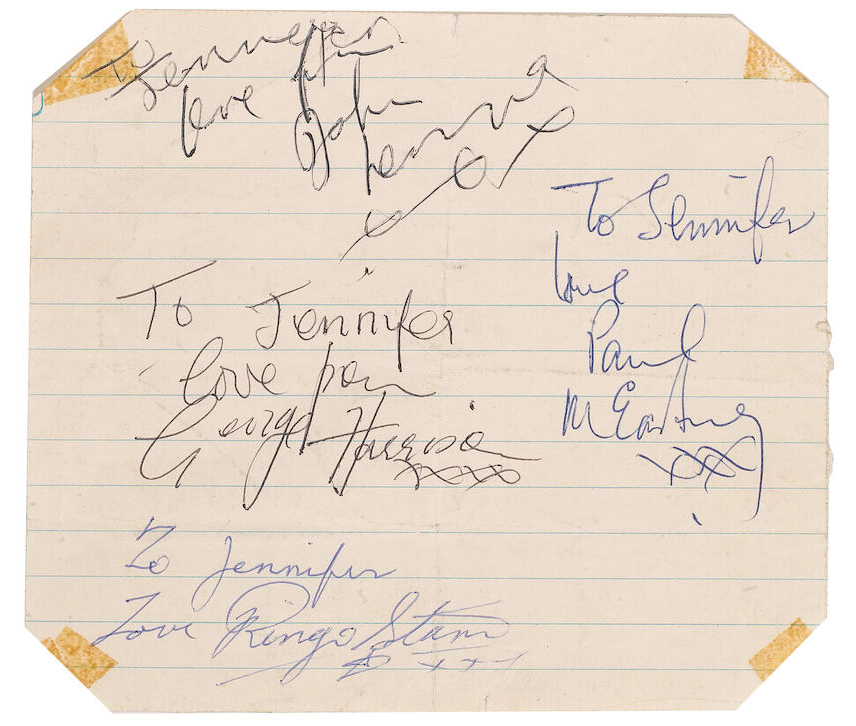 To
Jennifer
love from
John
Lennon
xox
To Jennifer
love
Paul
McCartney
xxx
To Jennifer
love from
George Harrison
xxxx
To Jennifer
Love Ringo Starr
xxx